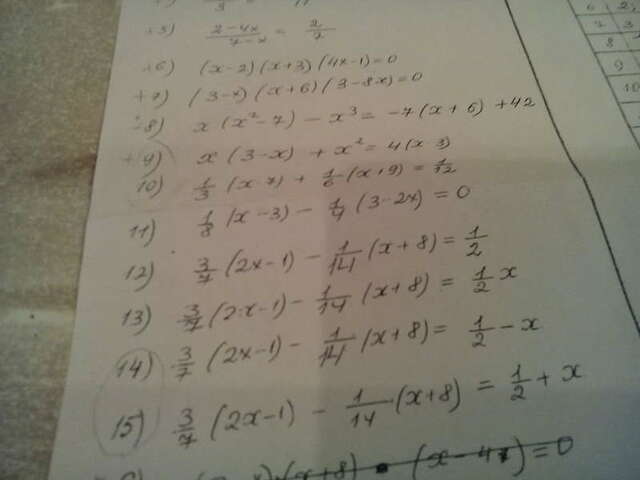 +5) (2-4x)/(7-x) = 2/7
+6) (x-2)(x+3)(4x-1)=0
+7) (3-x)(x+6)(3-8x)=0
+8) x(x²-7) - x³ = -7(x+6) +42
+9) x(3-x) + x² = 4(x 3)
10) 1/3 (x-7) + 1/6 (x+9) = 1/12
11) 1/8 (x-3) - 1/4 (3-2x) = 0
12) 3/7 (2x-1) - 1/14 (x+8) = 1/2
13) 3/7 (2x-1) - 1/14 (x+8) = 1/2 x
14) 3/7 (2x-1) - 1/14 (x+8) = 1/2 - x
15) 3/7 (2x-1) - 1/14 (x+8) = 1/2 + x
(x+8) (x-4x)=0
6 2
7 3
8
9
10